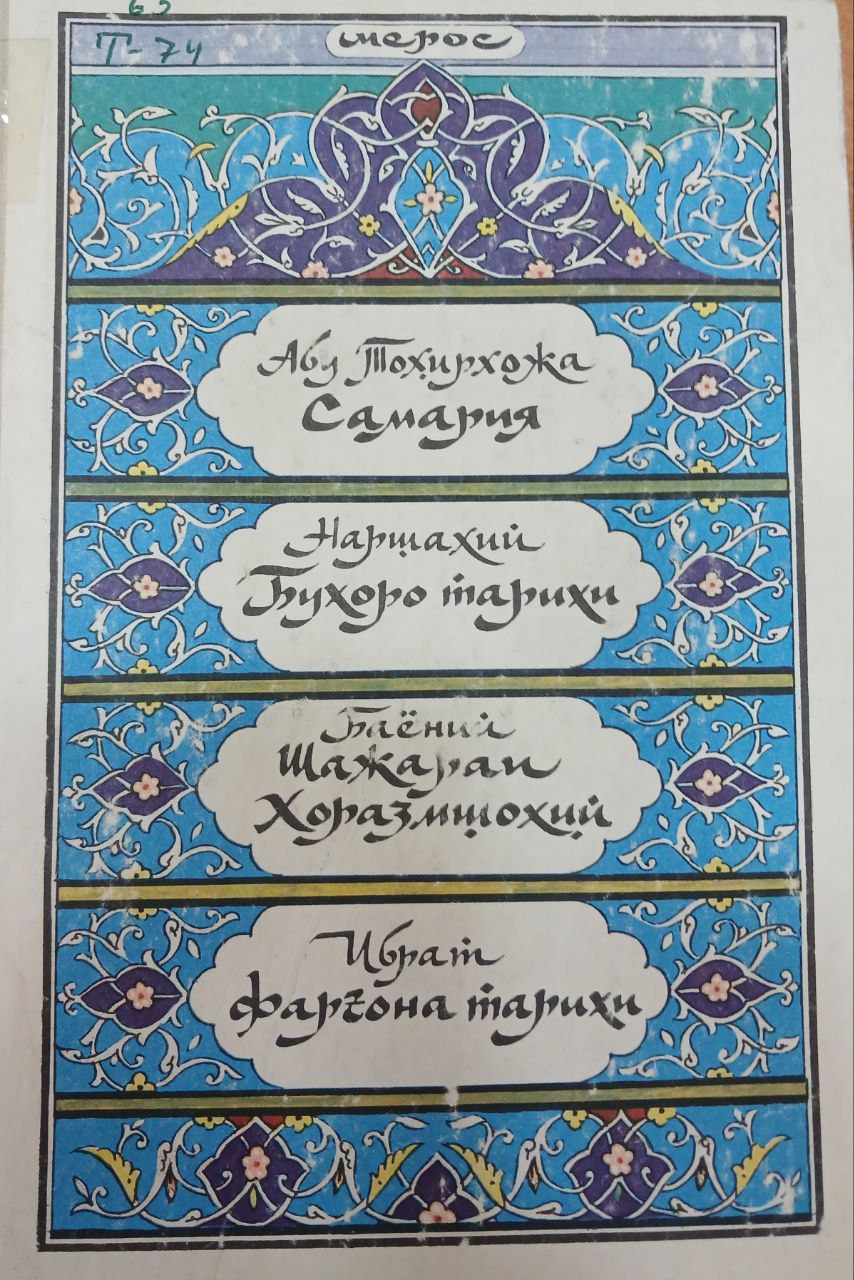 Т-74
мерос
Абу Тоҳирхожа
Самария
Наршахий
Бухоро тарихи
Баёний
Шажараи
Хоразмшоҳий
Ибрат
Фарғона тарихи